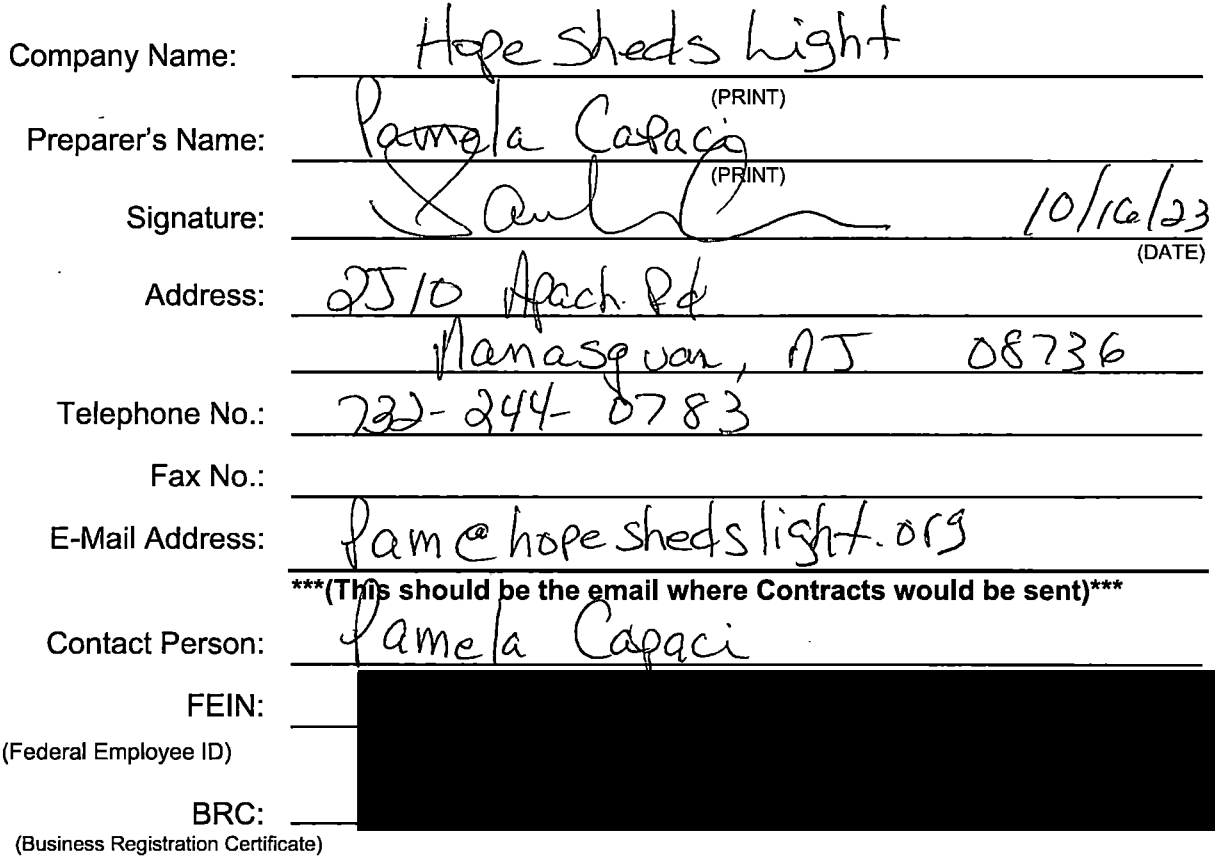 Company Name: Hope Sheds Light
(PRINT)
Preparer's Name: Pamela Capaci
(PRINT)
Signature: 10/16/23
(DATE)
Address: 2510 Apach. Rd
Manasquan, NJ 08736
Telephone No.: 732-244-0783
Fax No.:
E-Mail Address: Pam@hopeshedslight.org
***(This should be the email where Contracts would be sent)***
Contact Person: Pamela Capaci
FEIN:
(Federal Employee ID)
BRC:
(Business Registration Certificate)